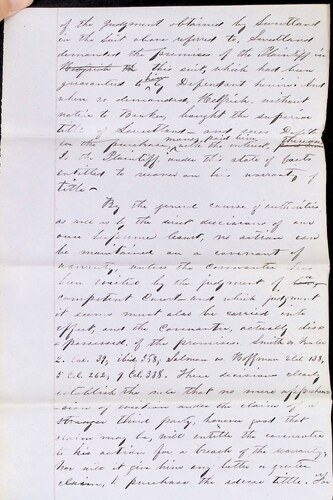 of the judgment obtained by Sweetland
in the suit above referred to, Sweetland
demanded the premises of the Plaintiff in
this suit, which had been
guaranteed to by Defendant herein: but
when so demanded, Helfrich, without
notice to Baker, bought the superior
title of Sweetland - and sues Deft
for the purchase money paid him, with the interest thereon
Is the Plaintiff under this state of facts
entitled to recover on his warranty of
title -
By the general course of authorities
as well as by the direct decisions of our
own Supreme Court, no action can
be maintained on a covenant of
warranty, unless the covenantee has
been evicted by the judgment of
competent Court and which judgment
it seems must also be carried into
effect, and the Covenantee, actually dis-
possessed, of the premises. Smith
2. Cal. 39, ibid 358, Salmon vs Hoffman 2 Cal 138,
5 Cal. 262, 9 Cal. 338. These decisions clearly
establish the rule that no mere apprehen-
sion of eviction under the claim of a
stranger third party, however good that
claim may be, will entitle the covenantee
to his action for a breach of the warranty,
nor will it give him any better or greater
claim, to purchase the adverse title.